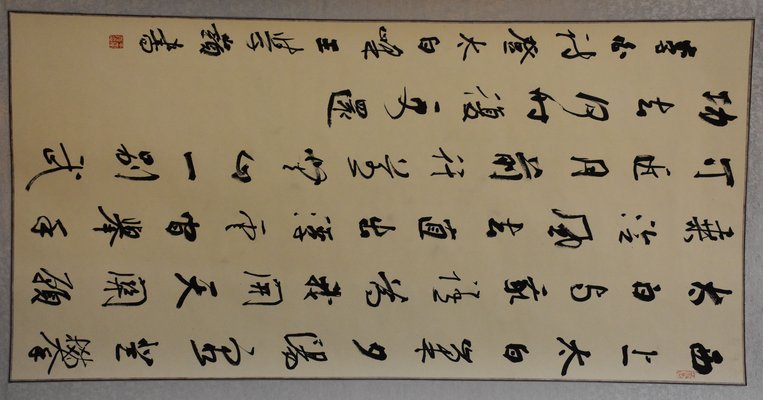 西上太白峯夕陽窮登攀
太白与我語為我開天關願
乘泠風去直出浮雲間舉手
可近月前行若無山一別武
功去何時復更還
李白詩登太白峰王書